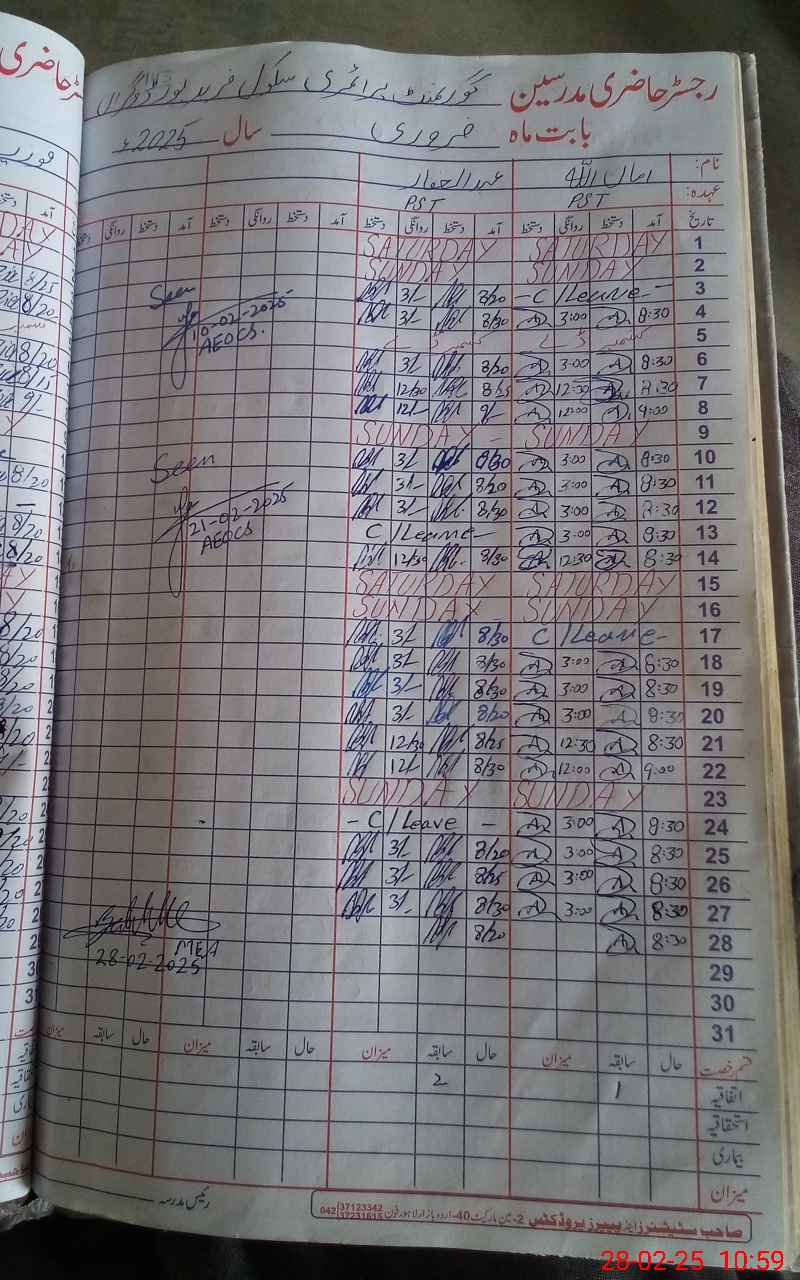 رجسٹر حاضری مدرسین گورنمنٹ پرائمری سکول فرید پور ڈوگراں
بابت ماہ فروری سال 2025ء
نام: امان اللہ عبدالغفار
عہدہ: PST PST
تاریخ آمد دستخط روانگی دستخط آمد دستخط روانگی دستخط آمد دستخط روانگی دستخط آمد دستخط روانگی دستخط
1 SATURDAY SATURDAY
2 SUNDAY SUNDAY
3 - C/Leave - 8/20 3/-
4 8:30 3:00 8/30 3/-
5 کشمیر ڈے کشمیر ڈے
6 8:30 3:00 8/20 3/-
7 8:30 12:30 8/25 12/30
8 9:00 12:00 9/- 12/-
9 SUNDAY SUNDAY -
10 8:30 3:00 8/30 3/-
11 8:30 3:00 8/20 3/-
12 8:30 3:00 8/30 3/-
13 8:30 3:00 C/Leave -
14 8:30 12:30 8/30 12/30
15 SATURDAY SATURDAY
16 SUNDAY SUNDAY
17 C/Leave - 8/30 3/-
18 8:30 3:00 8/30 3/-
19 8:30 3:00 8/30 3/-
20 8:30 3:00 8/20 3/-
21 8:30 12:30 8/25 12/30
22 9:00 12:00 8/30 12/-
23 SUNDAY SUNDAY
24 8:30 3:00 - C/Leave -
25 8:30 3:00 8/20 3/-
26 8:30 3:00 8/25 3/-
27 8:30 3:00 8/30 3/-
28 8:30 8/20
29
30
31
Seen
10-02-2025
AEOCS.
Seen
21-02-2025
AEOCS
MEA
28-02-2025
قسم رخصت حال سابقہ میزان حال سابقہ میزان حال سابقہ میزان حال سابقہ میزان
اتفاقیہ 1 2
استحقاقیہ
بیماری
میزان
رئیس مدرسہ
صاحب سٹیشنرز اینڈ پیپرز پروڈکٹس 2-مین مارکیٹ 40-اردو بازار لاہور فون 042 37123342 37231615
28-02-25 10:59